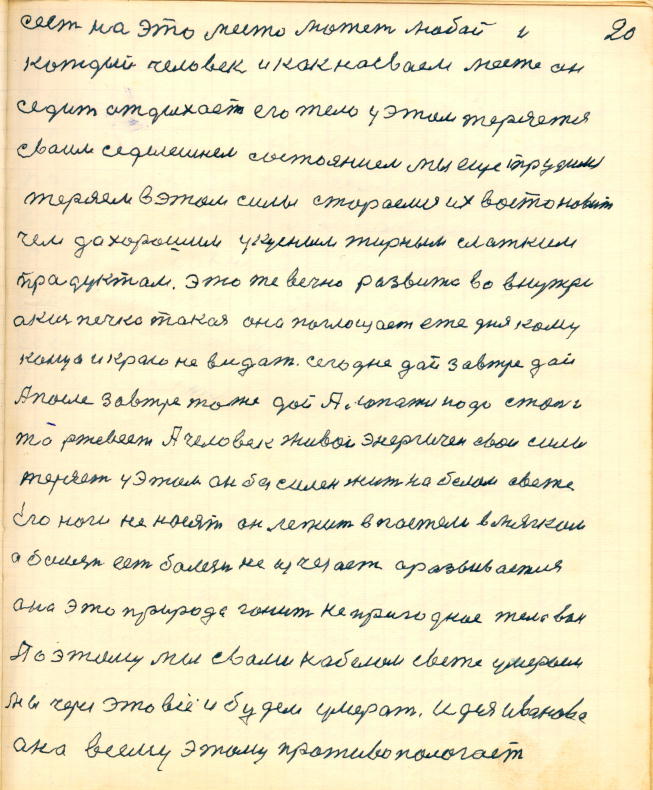 сест на это место может любой и 20
каждый человек и как насваем месте он
седит отдыхает его тело у этом теряется
сваим седилешнем состоянием мы еще трудимся
теряем в этом силы стораемся их востоновит
чем да хорошим укусным жирным слатким
прадуктам. это же вечно развито во внутре
акия печка такая она поглощает еже дня кому
конца и краю не видат. сегодне дай завтре дай
А после завтре тоже дой А лопажи подо стол и
то ржевеет А человек живой энергичен свои силы
теряет у этом он бесилен жит на белом свете
Его ноги не носят он лежит в постели в мягком
а болезн ест болезн не изчезает а развивается
она это природа гонит не пригодное тело вон
Поэтому мы свами на белом свете умераем
мы через это всё и будем умерат. Идея Иванова
ана всему этому противопологает